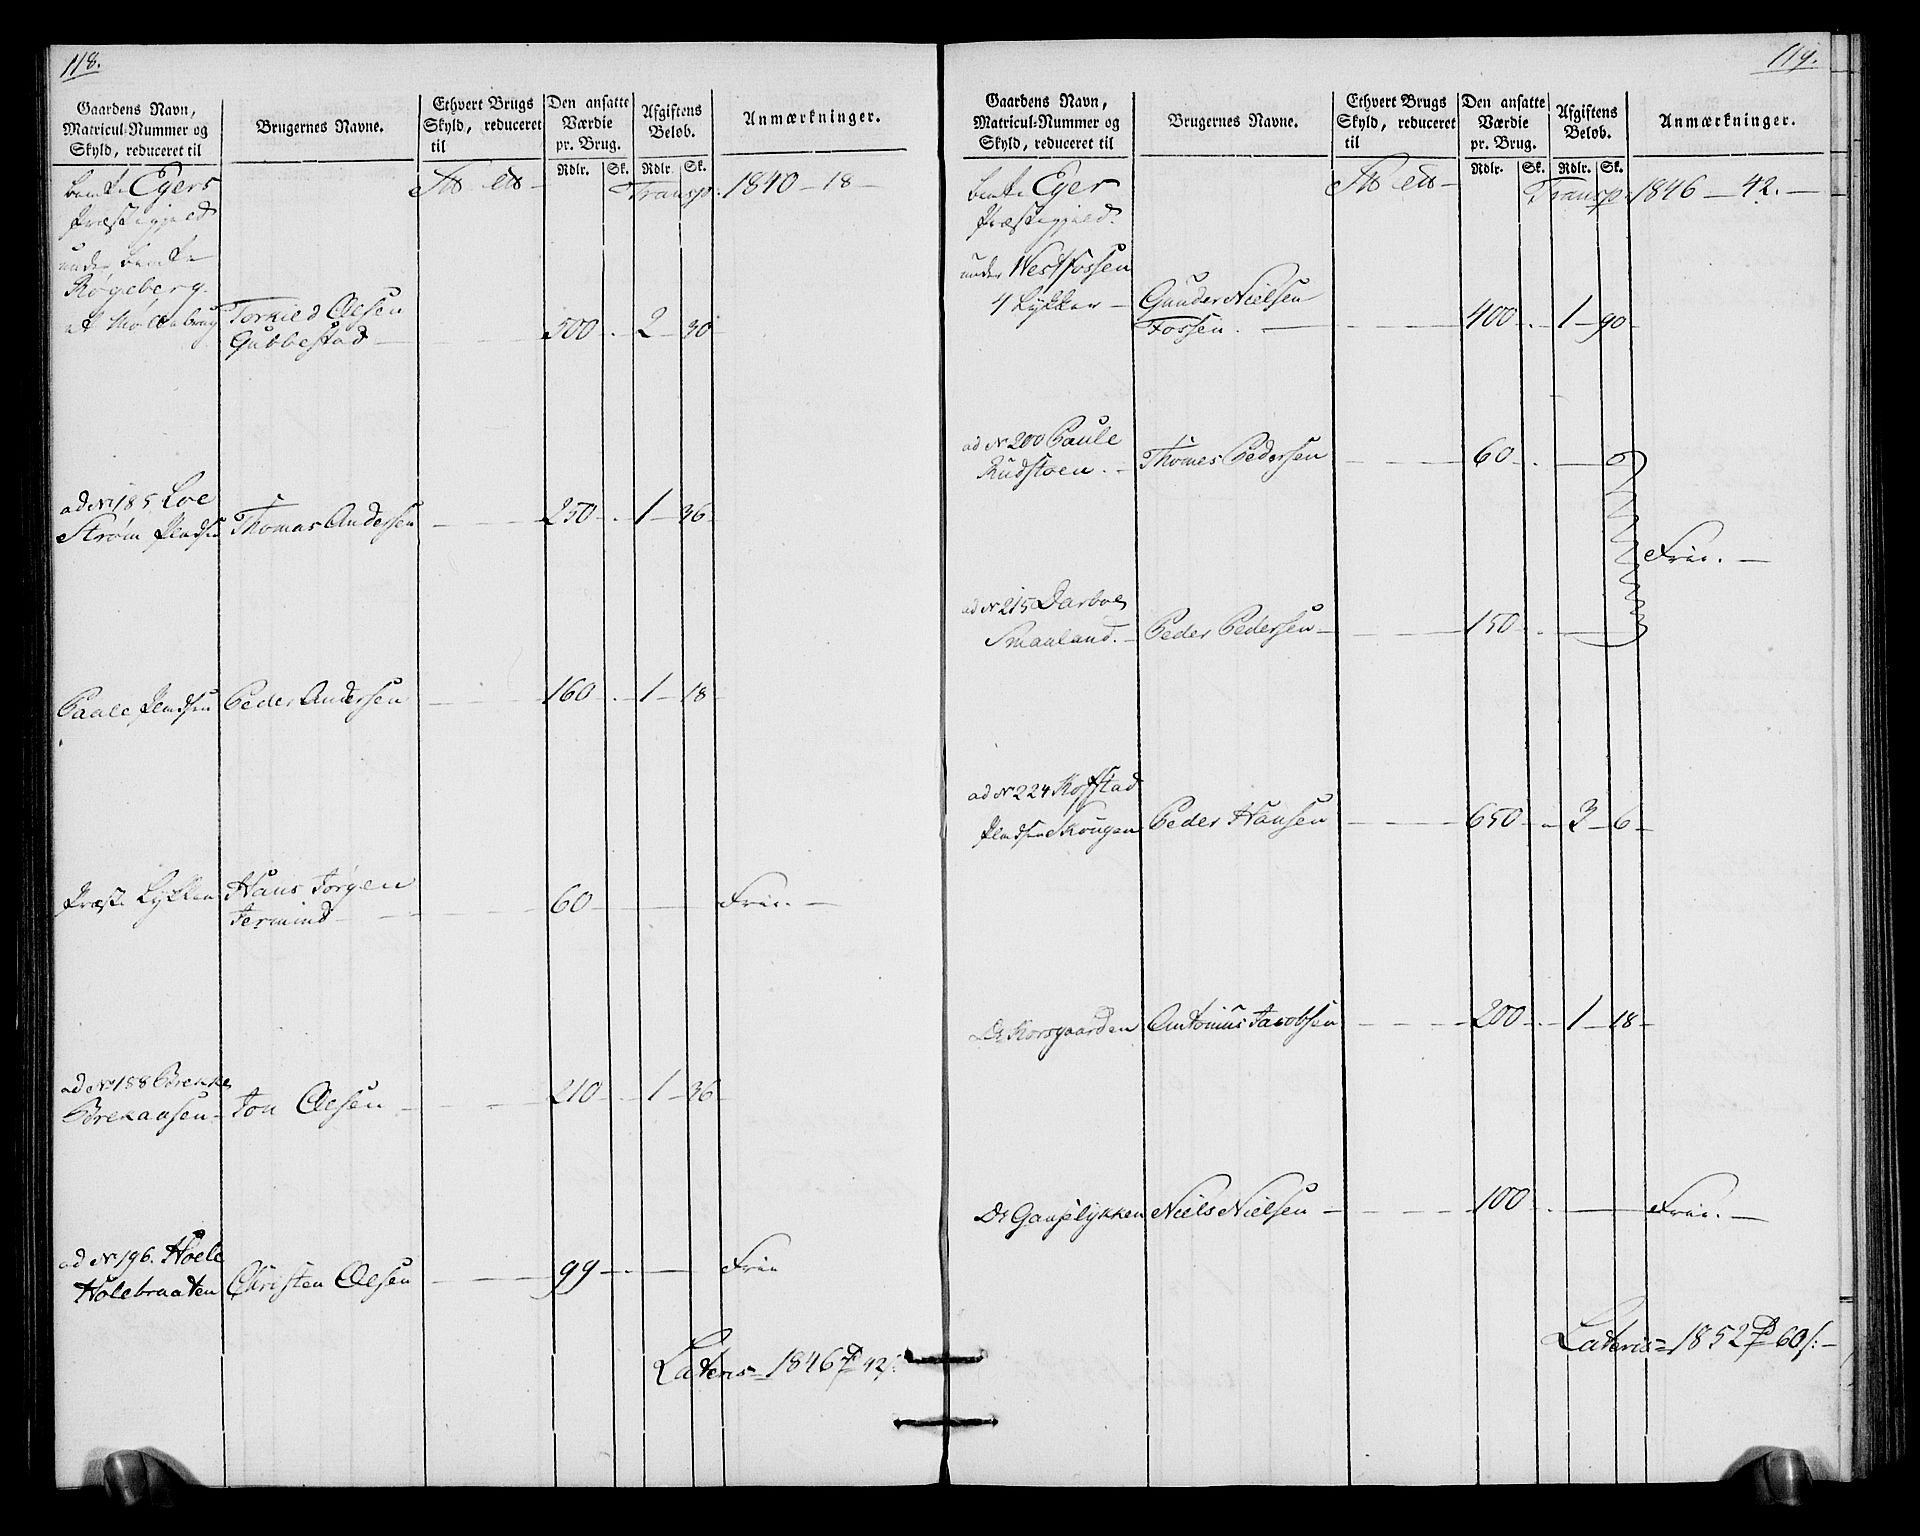 118.
Gaardens Navn,
Matricul-Nummer og
Skyld, reduceret til
Brugernes Navne.
Ethvert Brugs
Skyld, reduceret
til
Den ansatte
Værdie
pr. Brug.
Rdlr. Sk.
Afgiftens
Beløb.
Rdlr. Sk.
Anmærkninger.
Egers
Transp. 1840 - 18 -
Præstegjeld
under
Røgeberg.
Torkild Olesen
Gubbestad - 500 . 2 - 30
ad No 185 Loe
Strøm Pladsen Thomas Andersen - 250 - . 1 - 36
Paale Pladsen Peder Andersen - 160 . 1 - 18
Præste Løkken Hans Jørgen
Fermind - 60 - Frie. -
ad No 188 Brekke
Brekaasen - Jon Olesen - 210 - 1 - 36
ad No 196. Hoele
Holebraaten Christen Olesen - 99 - . - Frie
Lateris - 1846 - 42
119.
Gaardens Navn,
Matricul-Nummer og
Skyld, reduceret til
Brugernes Navne.
Ethvert Brugs
Skyld, reduceret
til
Den ansatte
Værdie
pr. Brug.
Rdlr. Sk.
Afgiftens
Beløb.
Rdlr. Sk.
Anmærkninger.
Eger
Transp. 1846 - 42. -
Præstegjeld.
under Westfossen
4 Løkker - Gunder Nielsen
Fossen. - 400 . 1 - 90
ad No 200 Paule
Rudstoen. - Thomes Pedersen - 60 - . -
Frie. -
ad No 215 Darboe
Smaaland. - Peder Pedersen - 150 - . -
ad No 224 Koffstad
Pladsen Skougen Peder Hansen - 650 - . 3 - 6 -
Do Korsgaarden Antonius Jacobsen - 200 - . 1 - 18 -
Do Gauplykken Niels Nielsen - 100 - . - Frie. -
Lateris = 1852 - 60